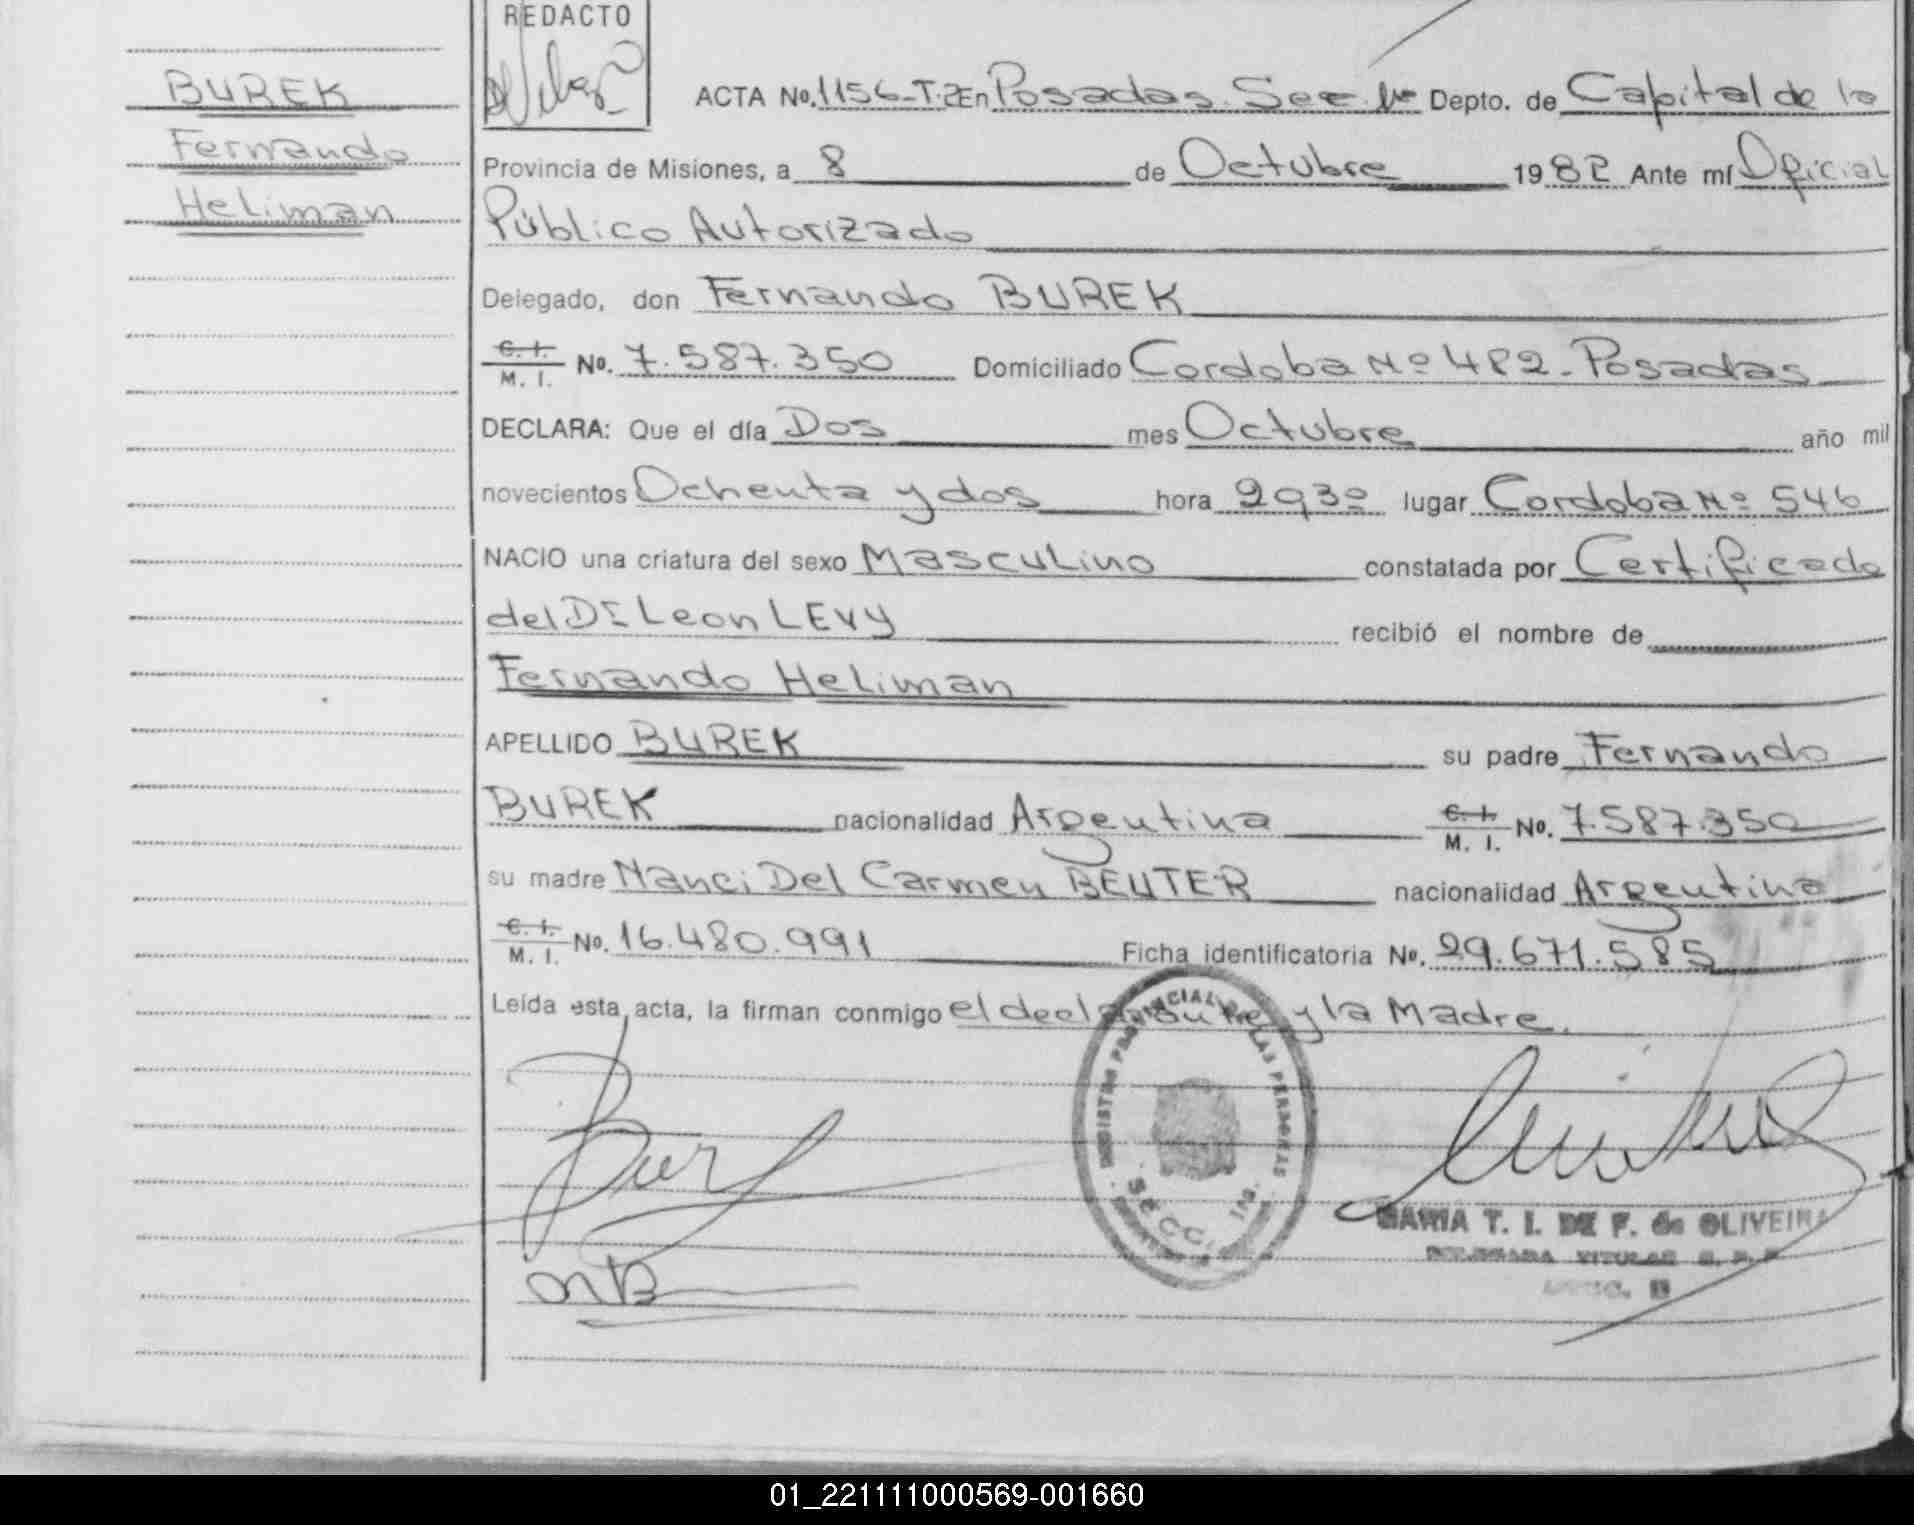 REDACTO
BUREK
Fernando
Heliman
ACTA No. 1156-T.2 En Posadas. Sec. 1ra Depto. de Capital de la
Provincia de Misiones, a 8 de Octubre 1982 Ante mí Oficial
Público Autorizado
Delegado, don Fernando BUREK
C. I. M. I. No. 7.587.350 Domiciliado Cordoba Nº 482. Posadas
DECLARA: Que el día Dos mes Octubre año mil
novecientos Ochenta y dos hora lugar Cordoba Nº 546
NACIO una criatura del sexo Masculino constatada por Certificado
del Dr Leon LEVY recibió el nombre de
Fernando Heliman
APELLIDO BUREK su padre Fernando
BUREK nacionalidad Argentina C. I. M. I. No. 7.587.350
su madre Nanci Del Carmen BEUTER nacionalidad Argentina
C. I. M. I. No. 16.480.991 Ficha identificatoria No. 29.671.585
Leída esta acta, la firman conmigo el declarante y la Madre.
REGISTRO PROVINCIAL DE LAS PERSONAS
SECC. 1ra.
MARIA T. I. DE F. de OLIVEIRA
01_221111000569-001660